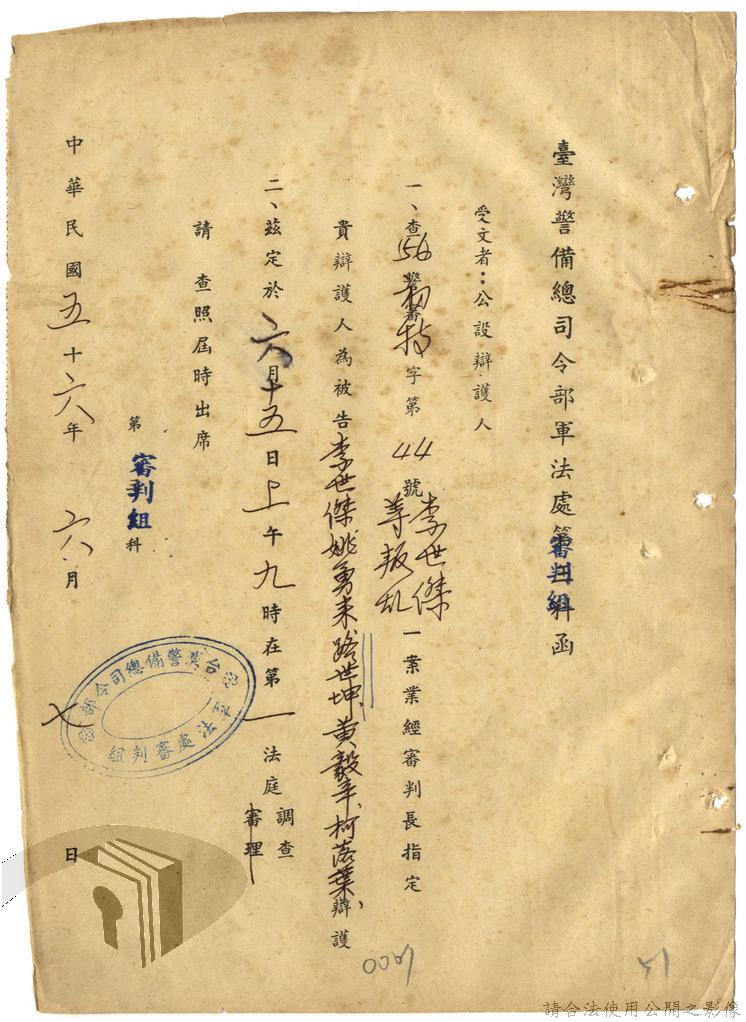 臺灣警備總司令部軍法處審判組函
受文者：公設辯護人
一、查56警審特字第44號李世傑等叛乱一案業經審判長指定
貴辯護人為被告李世傑、姚勇来、路世坤、黃毅辛、柯落葉、辯護
二、茲定於六月十五日上午九時在第一法庭調查審理
請查照屆時出席
第審判組科
中華民國五十六年六月七日
台灣警備總司令部
軍法處審判組
請合法使用公開之影像